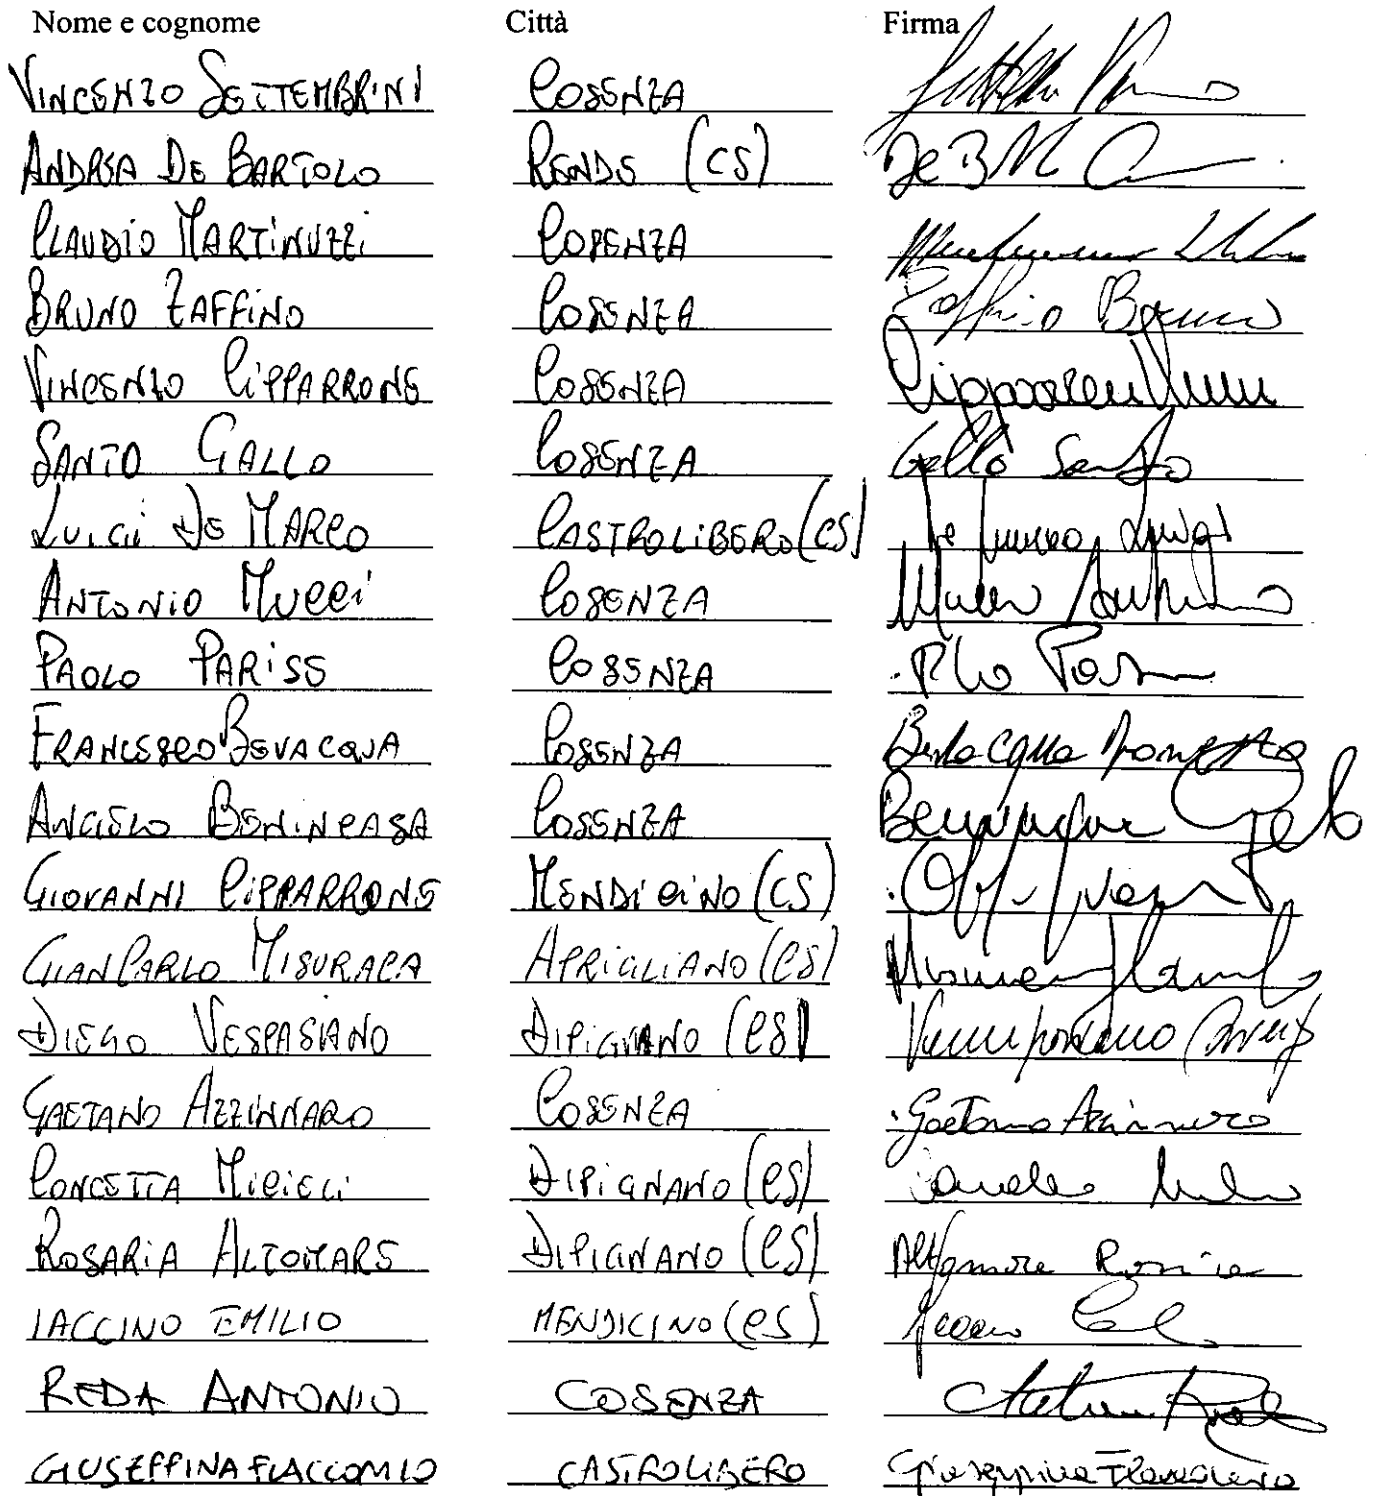 Nome e cognome Città Firma
VINCENZO SETTEMBRINI COSENZA
ANDREA DE BARTOLO RENDE (CS) De B
CLAUDIO MARTINUZZI COSENZA
BRUNO ZAFFINO COSENZA Zaffino Bruno
VINCENZO CIPPARRONE COSENZA
SANTO GALLO COSENZA Gallo Santo
LUIGI DE MARCO CASTROLIBERO (CS) De Marco Luigi
ANTONIO MUCCI COSENZA
PAOLO PARISE COSENZA
FRANCESCO BEVACQUA COSENZA Bevacqua Francesco
ANGELO BENINCASA COSENZA
GIOVANNI CIPPARRONE MENDICINO (CS)
GIANCARLO MISURACA APRIGLIANO (CS)
DIEGO VESPASIANO DIPIGNANO (CS)
GAETANO AZZINNARO COSENZA Gaetano Azzinnaro
CONCETTA MICIELI DIPIGNANO (CS)
ROSARIA ALTOMARE DIPIGNANO (CS) Altomare Rosaria
IACCINO EMILIO MENDICINO (CS)
REDA ANTONIO COSENZA
GIUSEPPINA FLACCOMIO CASTROLIBERO Giuseppina Flaccomio